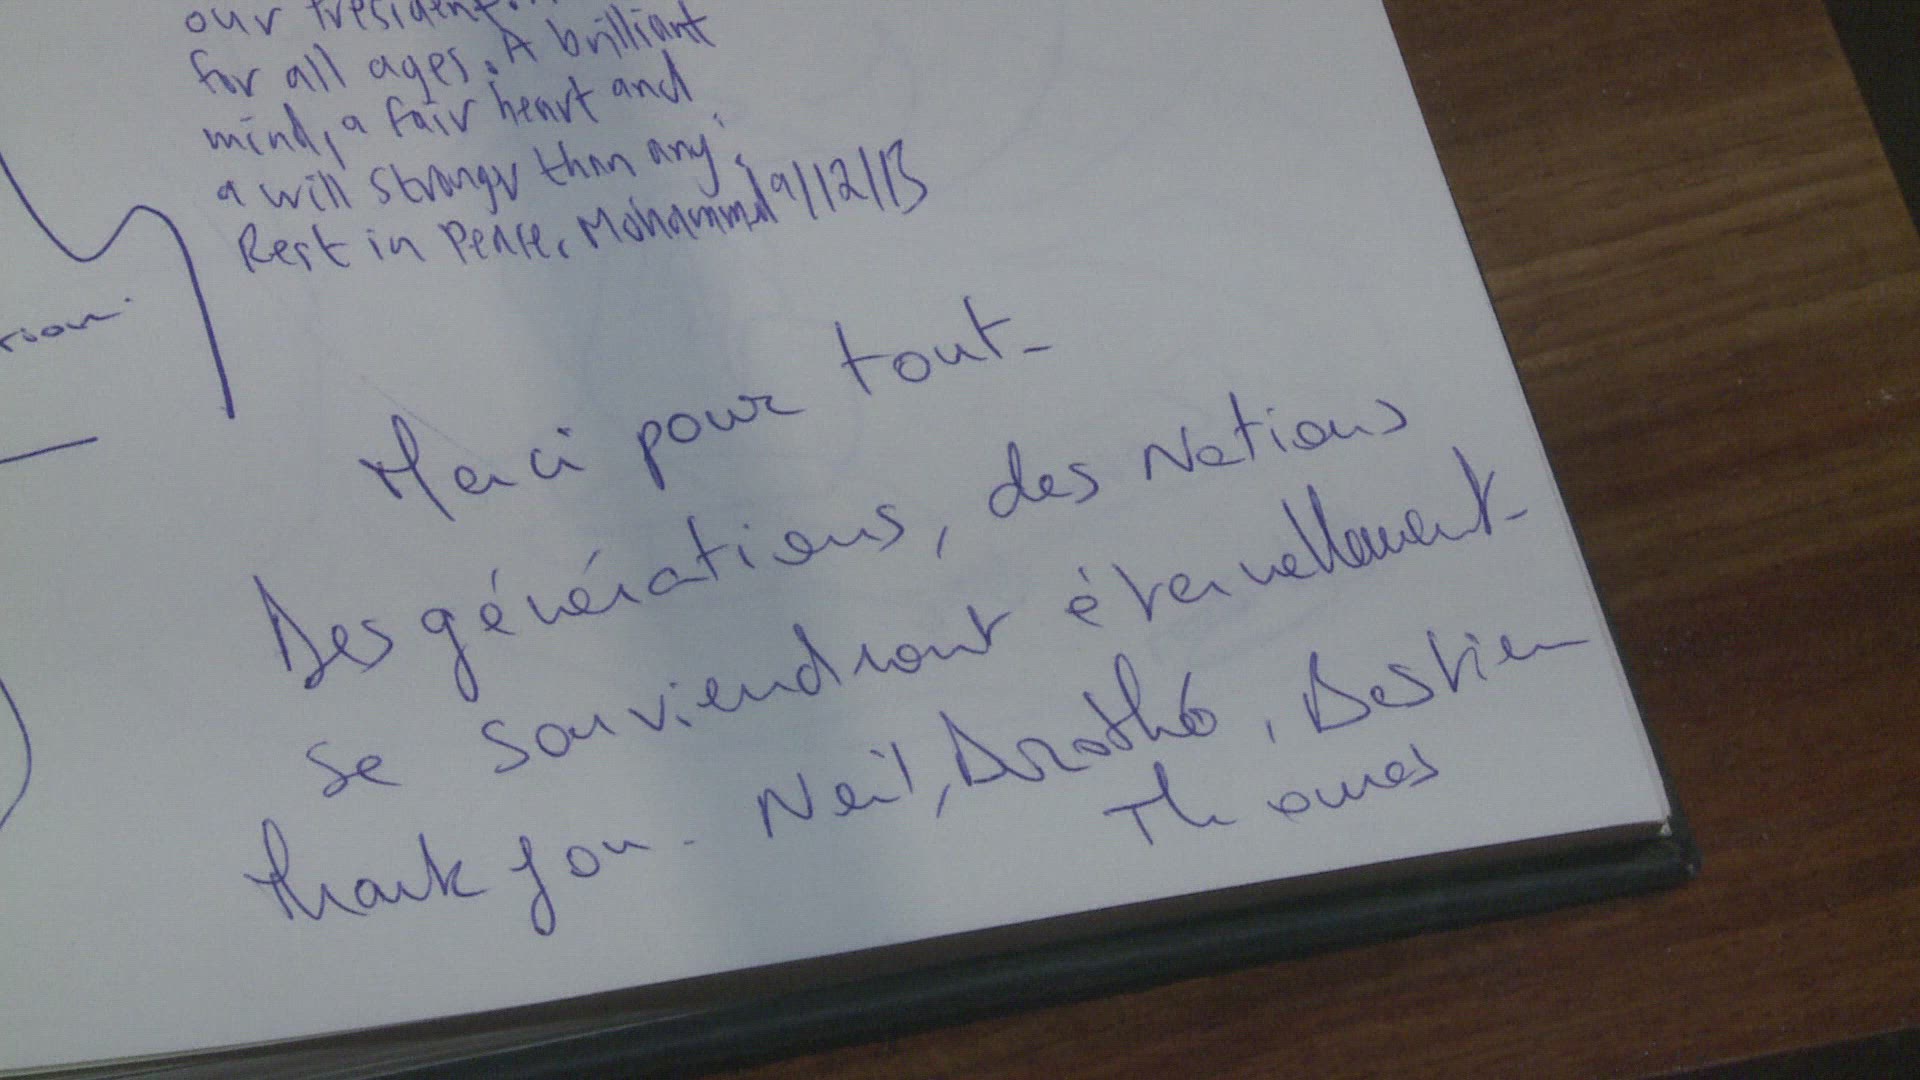 our President.
for all ages. A brilliant
mind, a fair heart and
a will stronger than any.
Rest in Peace. Mohammed 9/12/13
Merci pour tout -
Des générations, des Nations
se souviendront éternellement -
Thank you - Neil, Bastien
Thomas